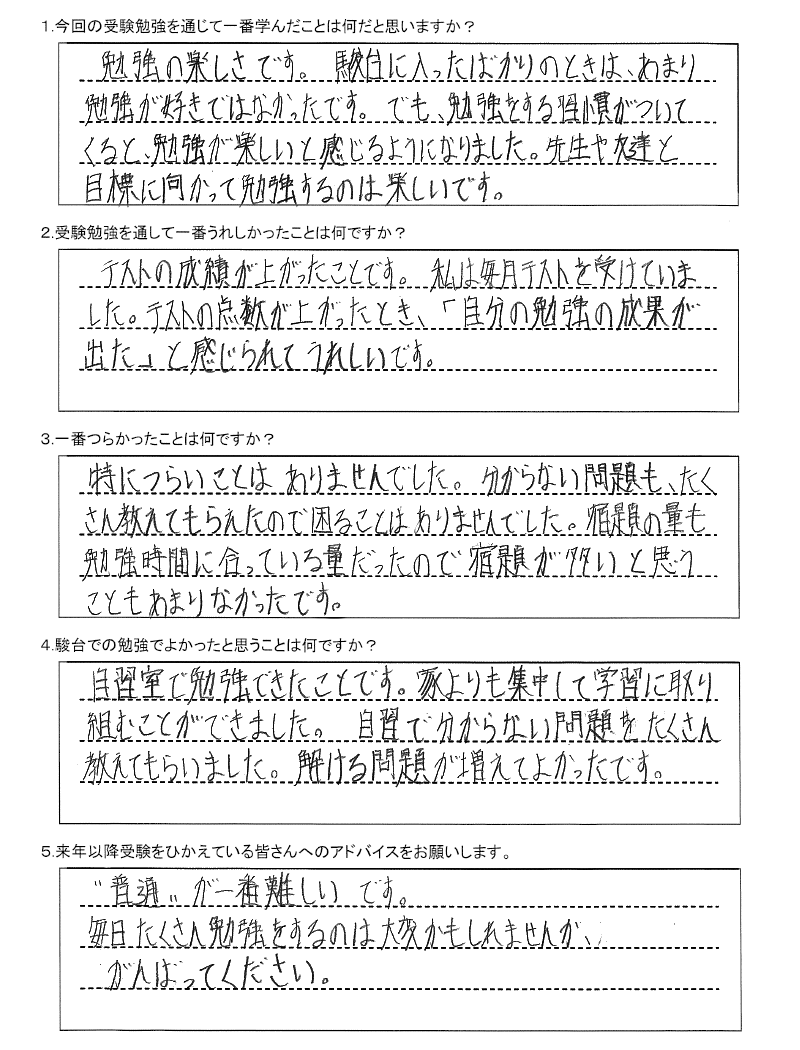 1.今回の受験勉強を通じて一番学んだことは何だと思いますか？
勉強の楽しさです。駿台に入ったばかりのときは、あまり
勉強が好きではなかったです。でも、勉強をする習慣がついて
くると、勉強が楽しいと感じるようになりました。先生や友達と
目標に向かって勉強するのは楽しいです。
2.受験勉強を通して一番うれしかったことは何ですか？
テストの成績が上がったことです。私は毎月テストを受けていま
した。テストの点数が上がったとき、「自分の勉強の成果が
出た」と感じられてうれしいです。
3.一番つらかったことは何ですか？
特につらいことはありませんでした。分からない問題も、たく
さん教えてもらえたので困ることはありませんでした。宿題の量も
勉強時間に合っている量だったので宿題が多いと思う
こともあまりなかったです。
4.駿台での勉強でよかったと思うことは何ですか？
自習室で勉強できたことです。家よりも集中して学習に取り
組むことができました。自習で分からない問題をたくさん
教えてもらいました。解ける問題が増えてよかったです。
5.来年以降受験をひかえている皆さんへのアドバイスをお願いします。
"普通"が一番難しいです。
毎日たくさん勉強をするのは大変かもしれませんが、
がんばってください。